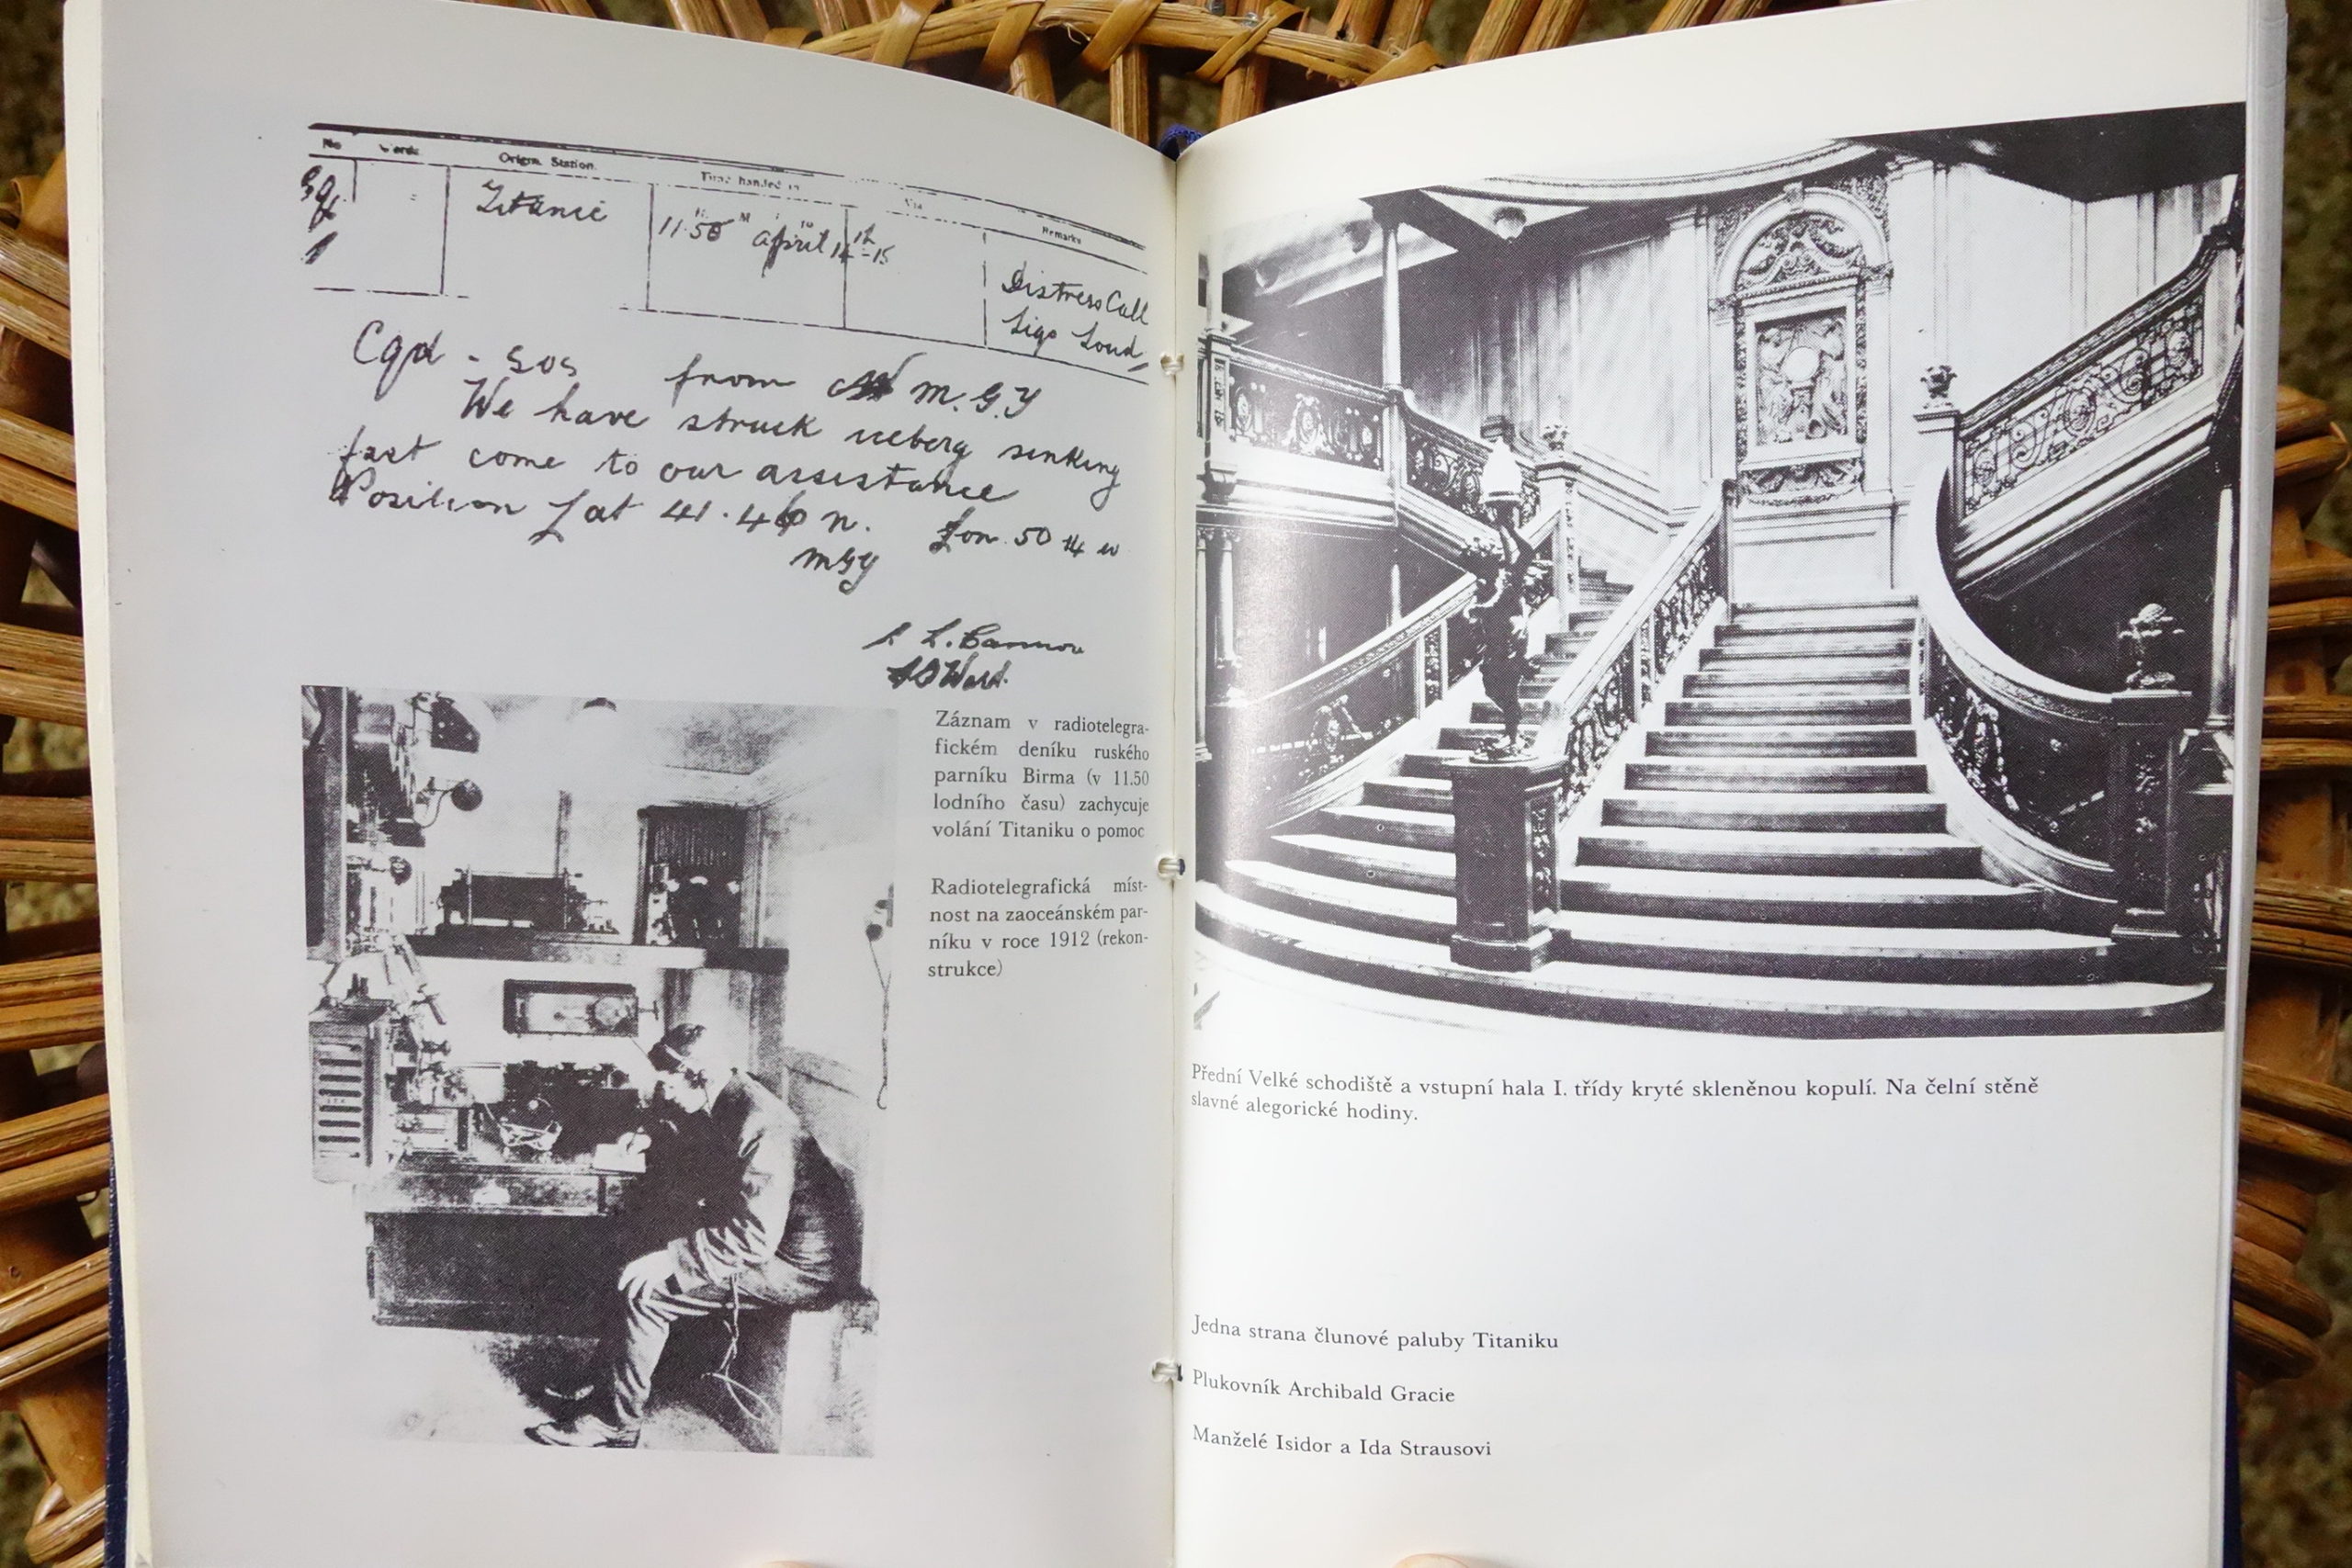 No Words Origin. Station. Time handed in Via Remarks
Titanic
H. M
11.50 April 14th-15
Distress Call
Ligs Loud
Cqd - SOS from M.G.Y
We have struck iceberg sinking
fast come to our assistance
Position Lat 41.46 n. Lon. 50 14 w
MGY
Záznam v radiotelegra-
fickém deníku ruského
parníku Birma (v 11.50
lodního času) zachycuje
volání Titaniku o pomoc
Radiotelegrafická míst-
nost na zaoceánském par-
níku v roce 1912 (rekon-
strukce)
Přední Velké schodiště a vstupní hala I. třídy kryté skleněnou kopulí. Na čelní stěně
slavné alegorické hodiny.
Jedna strana člunové paluby Titaniku
Plukovník Archibald Gracie
Manželé Isidor a Ida Strausovi